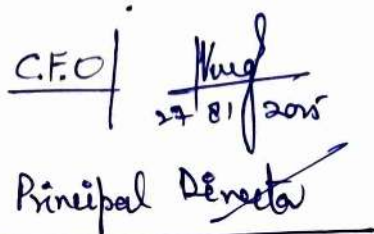 C.F.O
27 81 2015
Principal Director